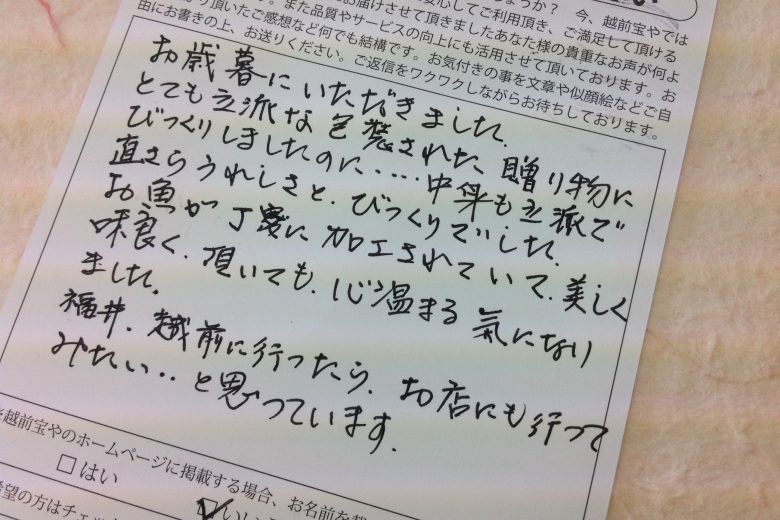 しょうか？　今、越前宝やでは
安心してご利用頂き、ご満足して頂ける
お届けさせて頂きましたあなた様の貴重なお声が何よ
す。また品質やサービスの向上にも活用させて頂いております。お
り頂いたご感想など何でも結構です。お気付きの事を文章や似顔絵などご自
由にお書きの上、お送りください。ご返信をワクワクしながらお待ちしております。
お歳暮にいただきました。
とても立派な包装された贈り物に
びっくりしましたのに……中身も立派で
直さらうれしさと、びっくりでした。
お魚が丁寧に加工されていて、美しく
味良く、頂いても、心温まる気になり
ました。
福井、越前に行ったら、お店にも行って
みたい‥と思っています。
越前宝やのホームページに掲載する場合、お名前を載
□はい
いい
希望の方はチェック